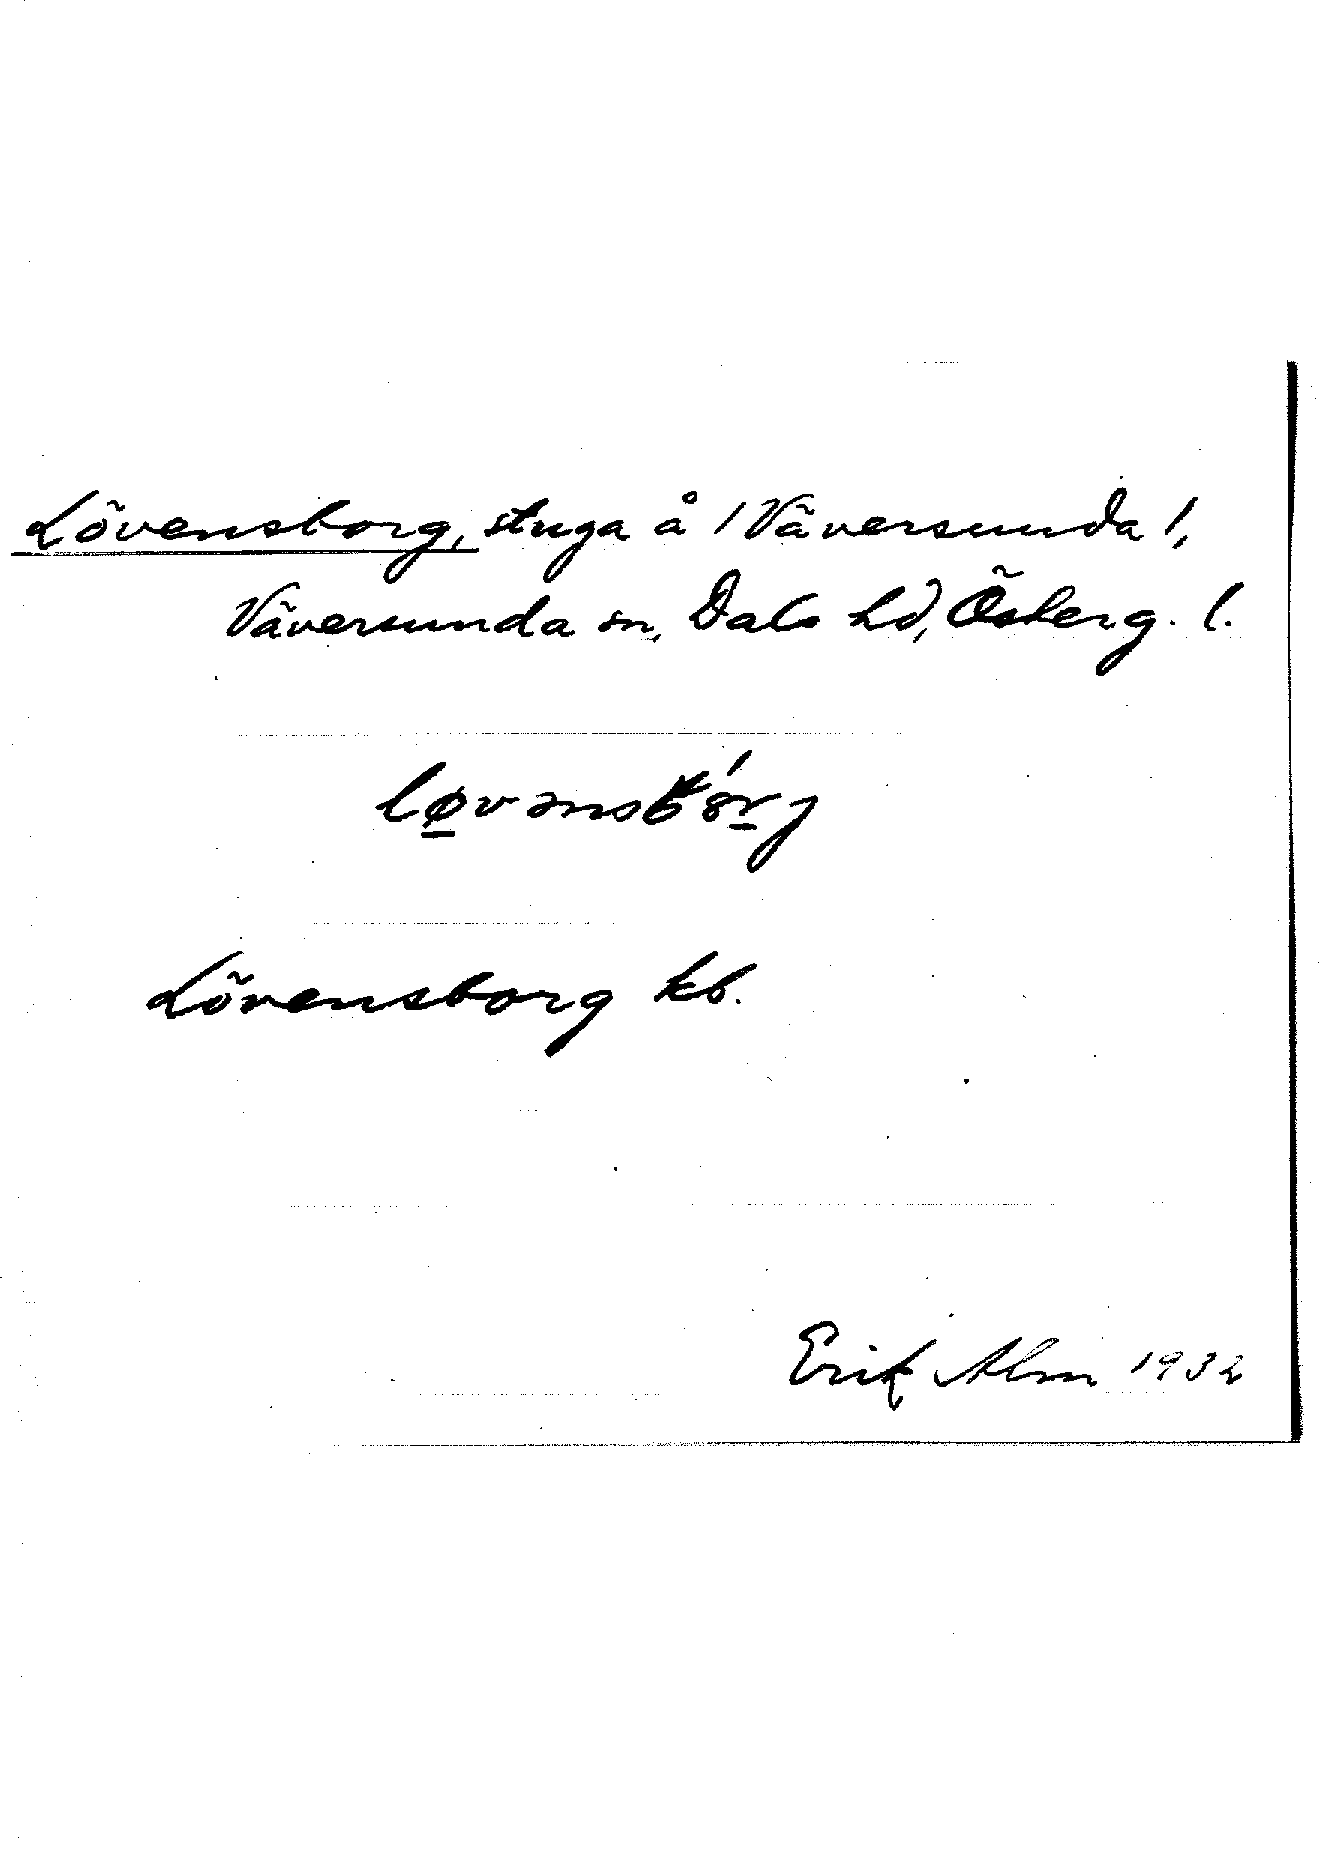 Lövensborg, stuga å /Väversunda/,
Väversunda sn, Dals hd, Österg. l.
Lövensborg kb.
Erik Alm 1932